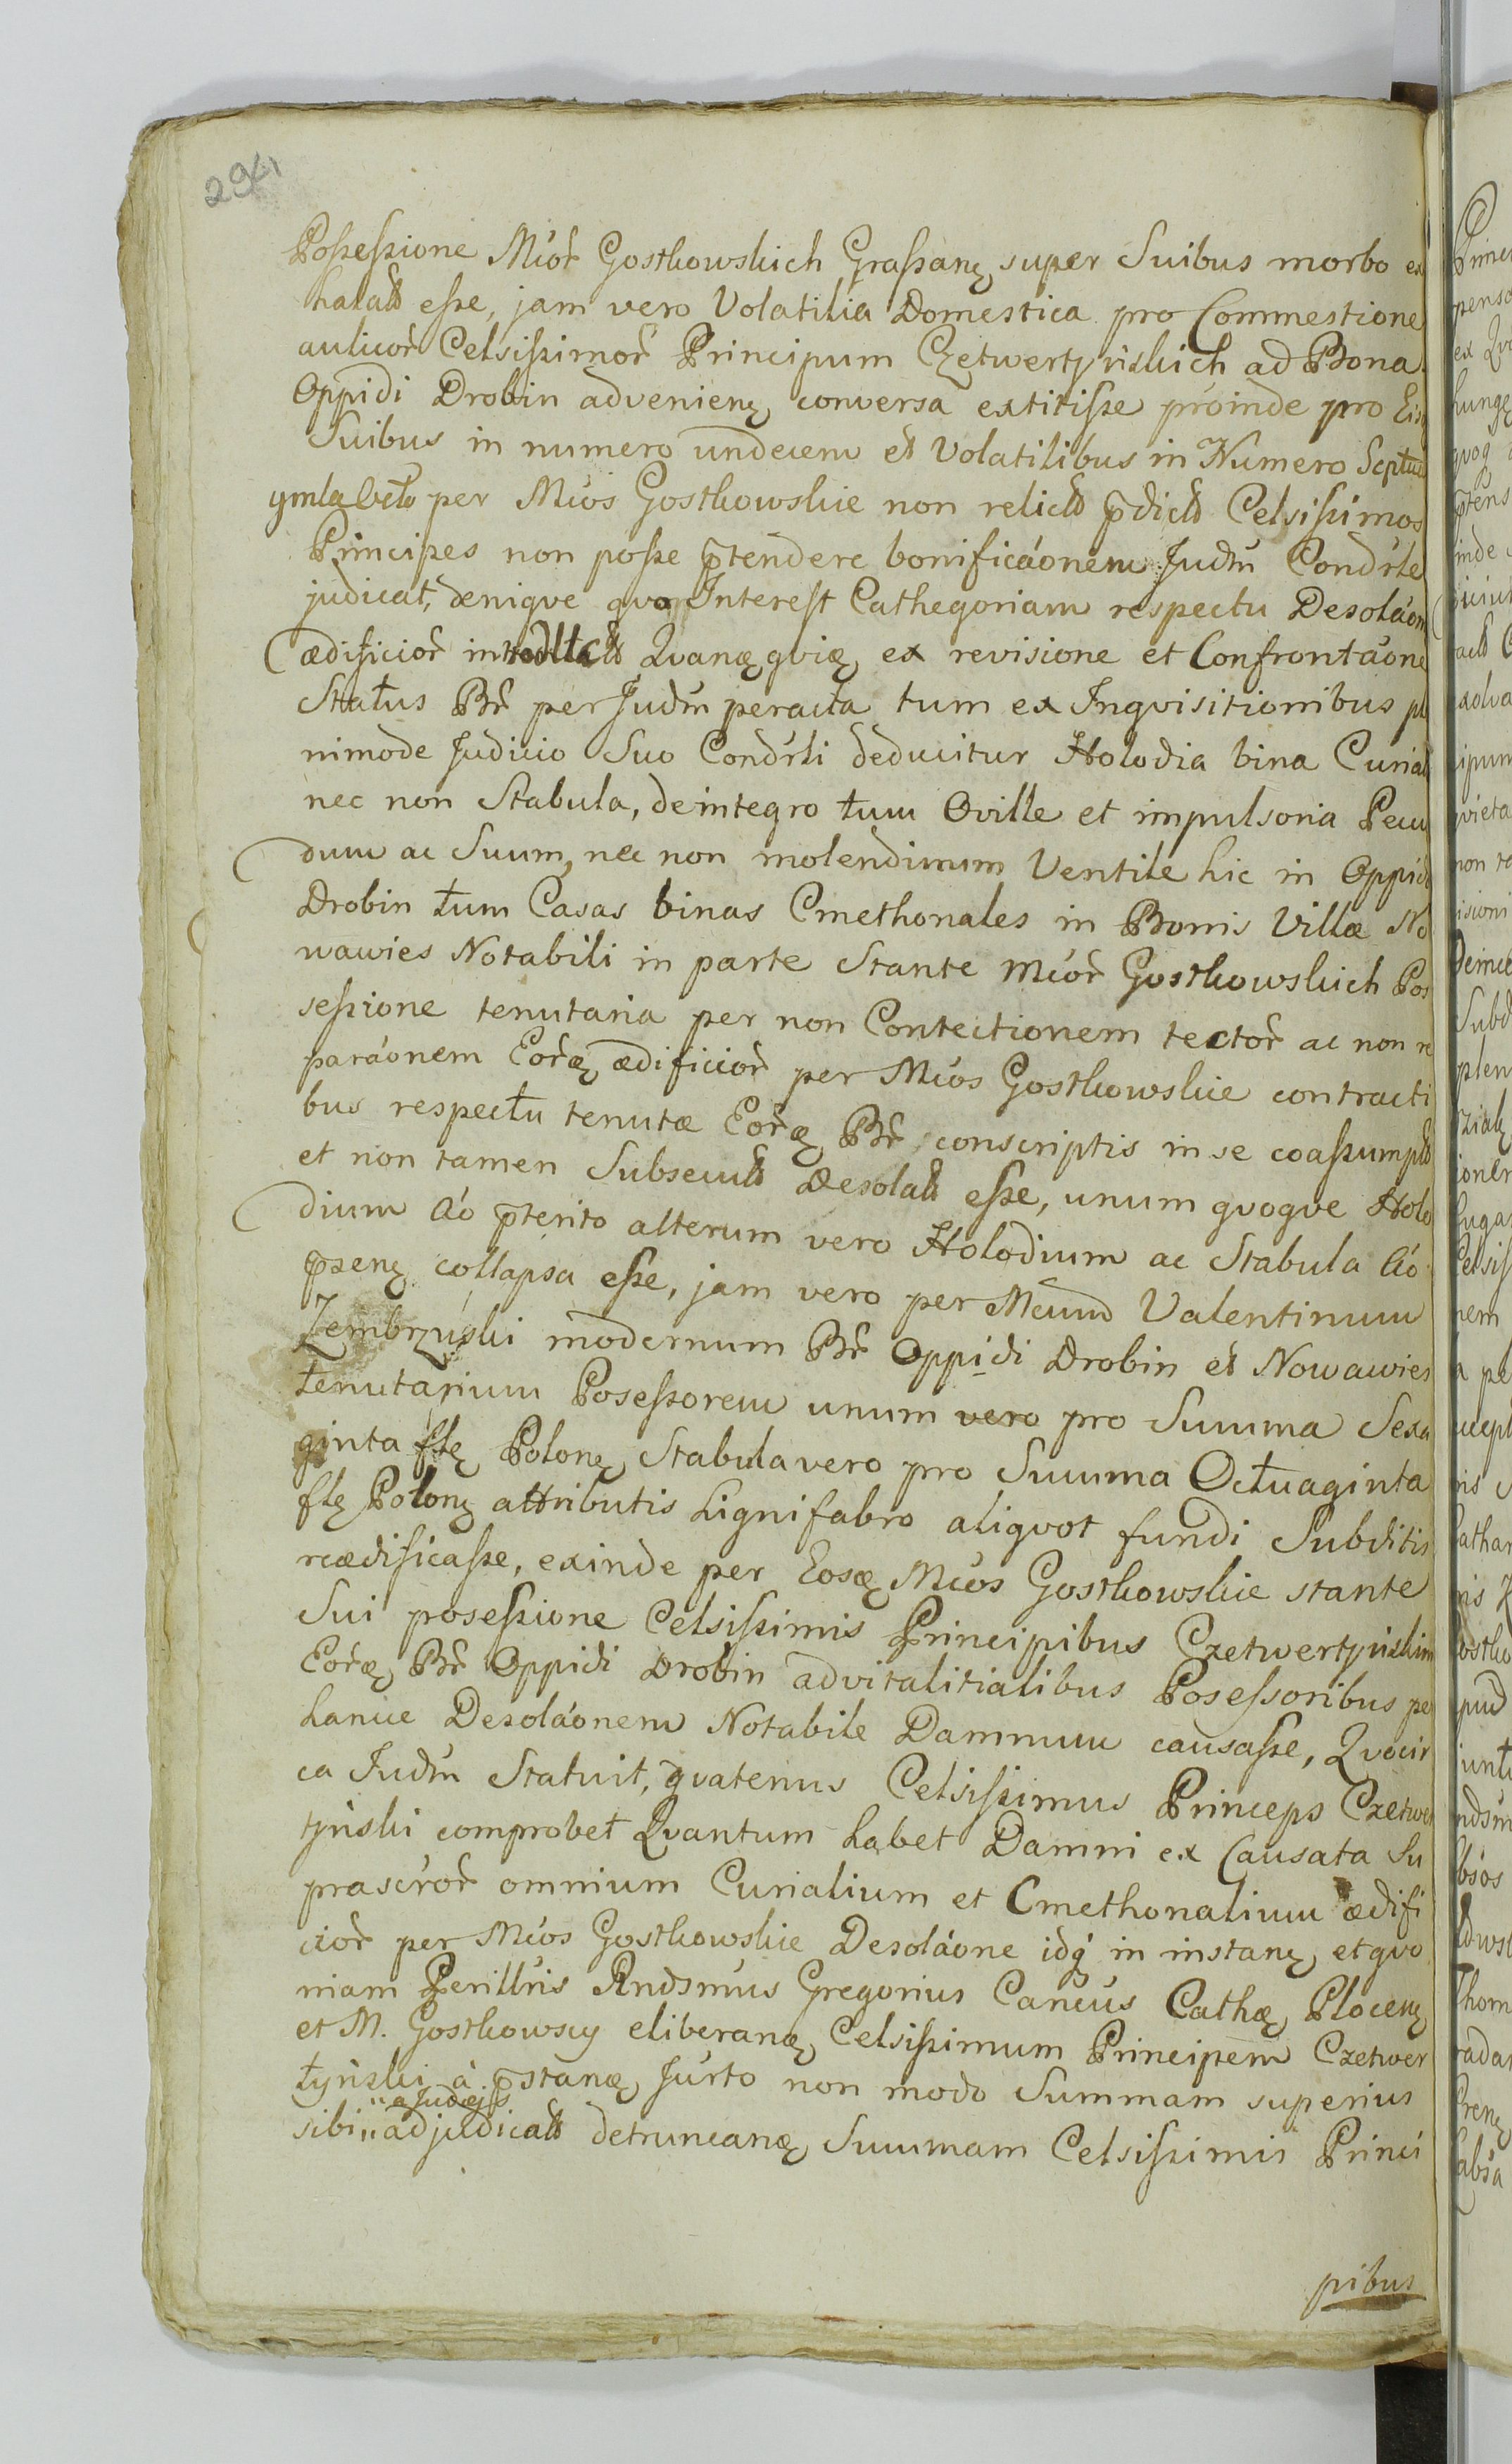 294
Possessione Mcor̃ Gostkowskich Grassanę super Suibus morbo ex
halatt esse, jam vero Volatilia Domestica pro Commestione
aulicor̃ Celsissimor̃ Principum Czetwertyńskich ad Bona
Oppidi Drobin advenienę conversa extitisse proinde pro Eis
Suibus in numero undecem et Volatilibus in Numero Septua
per Mcos Gostkowskie non relictt p̃dictt Celsissimos
Principes non posse p̃tendere bonificaonem Judm̃ Condr̃le
judicat, deniqve qvo Interest Cathegoriam respectu Desolaon
ædificior̃ Qvanęqvię ex revisione et Confrontaone
Status Br̃ per Judm̃ peracta tum ex Inqvisitionibus pl
nimode Judicio Suo Condr̃li deducitur Holodia bina Curial
nec non Stabula, deintegro tum Oville et impulsoria Pecu
dum ac Suum, nec non molendinum Ventile hic in Oppido
Drobin tum Casas binas Cmethonales in Bonis Villæ No
wawies Notabili in parte Stante Mcor̃ Gostkowskich Pos
sessione tenutaria per non Contectionem tector̃ ac non re
paraonem Eor̃ę ædificior̃ per Mcos Gostkowskie contracti
bus respectu tenutæ Eor̃ę Br̃ conscriptis in se coassumptt
et non tamen Subsecutt Desolatt esse, unum qvoqve Holo
dium Ao p̃terito alterum vero Holodium ac Stabula Ao
p̃senę collapsa esse, jam vero per Mcum Valentinum
Zembrzuski modernum Br̃ Oppidi Drobin et Nowawies
tenutarium Posessorem unum vero pro Summa Sexa
ginta flę Polonę Stabula vero pro Summa Octuaginta
flę Polonę attributis Lignifabro aliqvot fundi Subditis
reædificasse, exinde per Eosę Mcos Gostkowskie stante
Sui posessione Celsissimis Principibus Czetwertyńskim
Eor̃ę Br̃ Oppidi Drobin advitalitialibus Posessoribus per
hance Desolaonem Notabile Damnum causasse, Qvocir
ca Judm̃ Statuit, qvatenus Celsissimus Princeps Czetwer
tyński comprobet Qvantum habet Damni ex Causata Su
prascr̃or̃ omnium Curialium et Cmethonalium ædifi
cior̃ per Mcos Gostkowskie Desolaone idq́ in instanę, et qvo
niam Perillr̃is Rndsmus Gregorius Cancus Cathę Plocenę
et M. Gostkowscy eliberanę Celsissimum Principem Czetwer
tyński à p̃stanę Jurto non modo Summam superius
sibi adjudicatt detruncanę Summam Celsissimis Princi
pibus